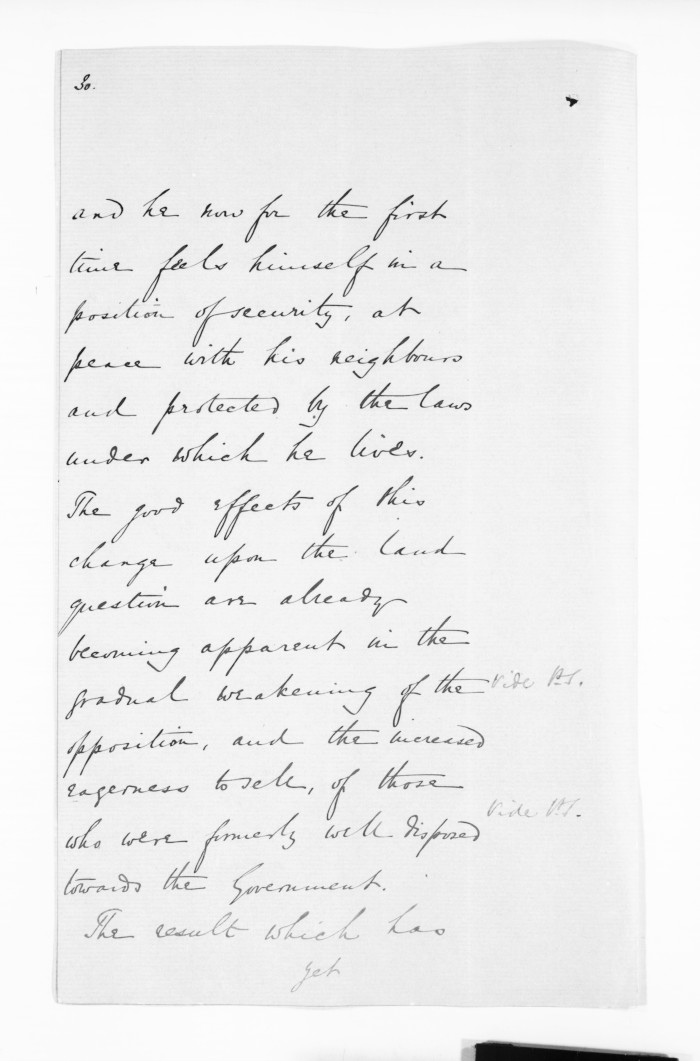 30.
and he now for the first
time feels himself in a
position of security, at
peace with his neighbours
and protected by the laws
under which he lives.
The good effects of this
change upon the land
question are already
becoming apparent in the
gradual weakening of the Vide P.S.
opposition, and the increased
eagerness to sell, of those
Vide P.S.
who were formerly well disposed
towards the Government.
The result which has
yet